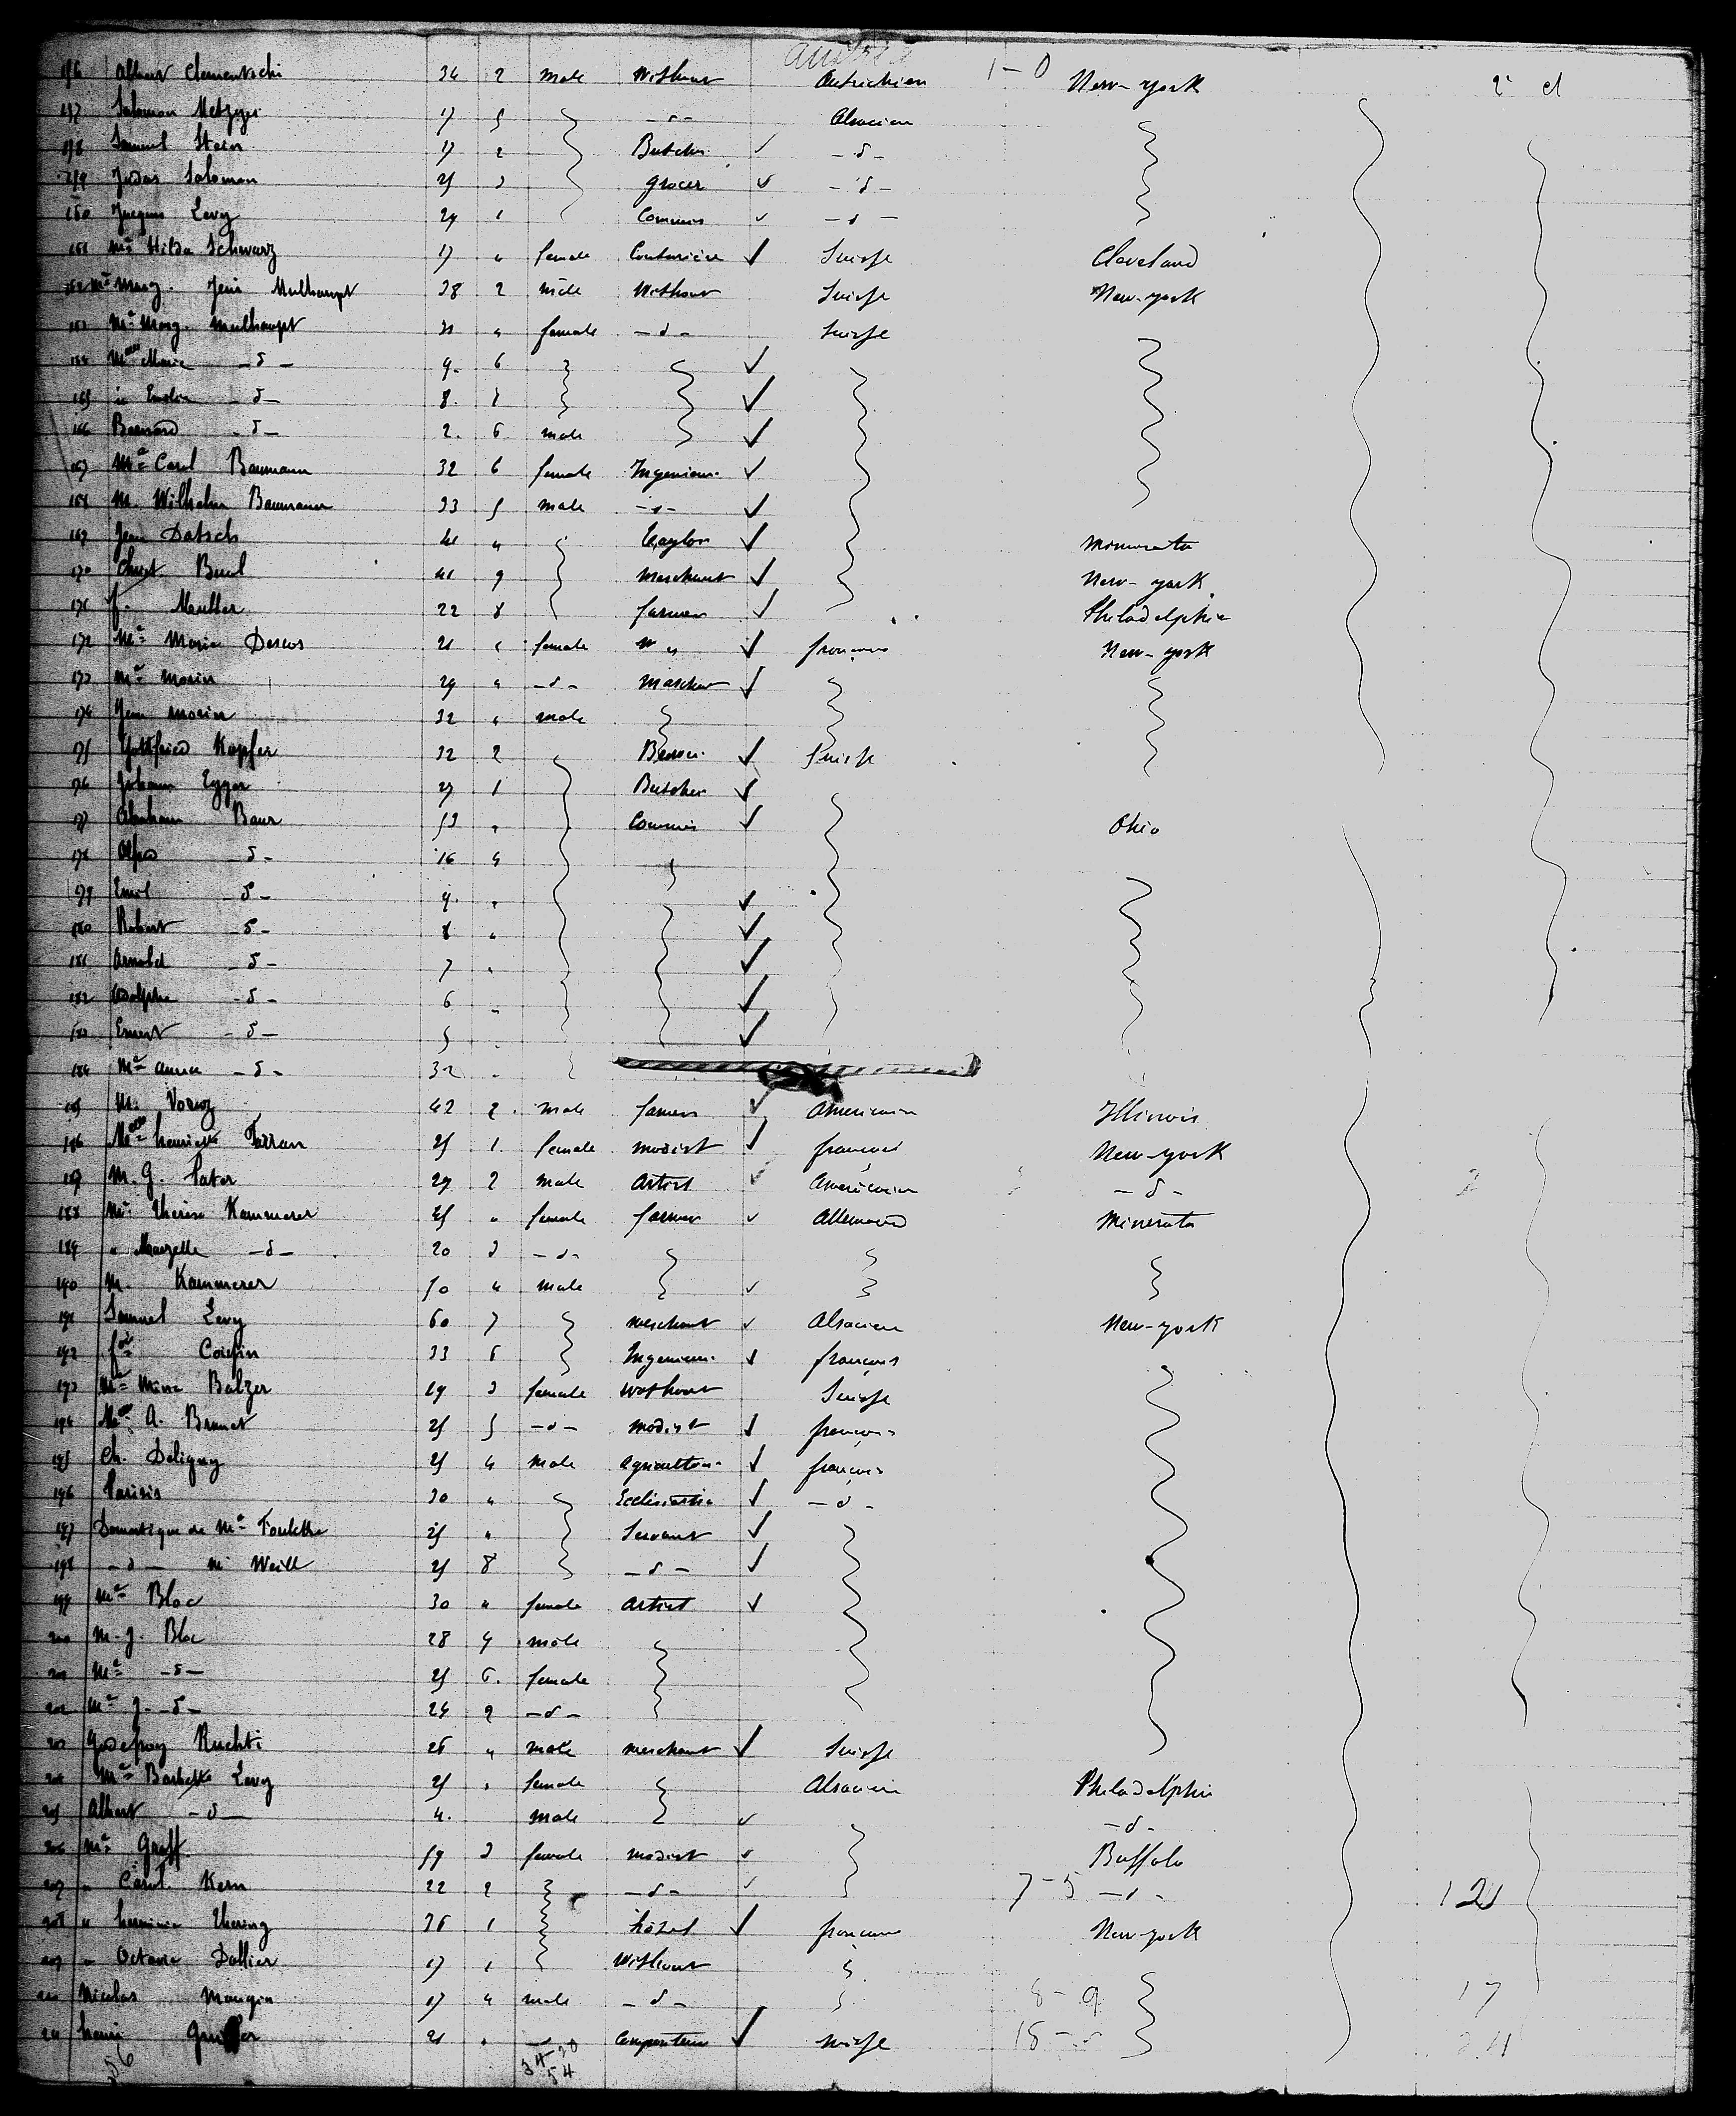 Austria
156 Albert Clementschi 34 2 male Without Autrichien 1-0 New-york 2e cl
157 Salomon Metzger 17 5 -d- Alsacien
158 Samuel Stein 17 2 Butcher ✓ -d-
159 Judas Salomon 25 3 grocer ✓ -d-
160 Jacques Levy 29 1 Commis ✓ -d-
161 Me Hilda Schwarz 17 " female Couturière ✓ Suisse Cleveland
162 Mr Marg. Jean Mulhaupt 38 2 male Without Suisse New-york
163 Me Marg. Mulhaupt 31 " female -d- Suisse
164 Melle Marie -d- 9. 6 ✓
165 Emilie -d- 8. 1 ✓
166 Bernard -d- 2. 6 male ✓
167 Me Carol Baumann 32 6 female Ingenieur ✓
168 M. Wilhelm Baumann 33 5 male -d- ✓
169 Jean Datsch 41 " Taylor ✓ Minnesota
170 Christ. Buol 41 9 Merchant ✓ New-york
171 f. Mauller 22 8 farmer ✓ Philadelphie
172 Me Marie Descos 21 " female " " ✓ français New-york
173 Me Morin 29 " -d- Marchand ✓
174 Jean Morin 32 " male
175 Gottfried Kopfer 32 2 Brewer ✓ Suisse
176 Johann Egger 27 1 Butcher ✓
177 Abraham Baur 53 " Commis ✓ Ohio
178 Alfred -d- 16 4
179 Emil -d- 9. " ✓
180 Robert -d- 8 " ✓
181 Arnold -d- 7 " ✓
182 Adolphe -d- 6 " ✓
183 Ernest -d- 5 " ✓
184 Me Anna -d- 32 "
185 M. Voruz 42 2 male farmer ✓ Americain Illinois
186 Melle henriette Farran 25 1. female modist ✓ français New-york
187 M. G. Pater 29 2 male Artist ✓ Americain -d- 2
188 Me Theresa Kammerer 25 " female farmer ✓ Allemand Minesota
189 " Marzelle -d- 20 3 -d-
190 M. Kammerer 50 4 male ✓
191 Samuel Levy 60 7 merchant ✓ Alsacien New-york
192 fois Coispin 33 6 Ingenieur ✓ français
193 Me Mina Balzer 29 3 female Without Suisse
194 Melle A. Brunet 25 5 -d- Modist ✓ français
195 Ch. Deligny 25 4 male Agriculteur ✓ français
196 Parisis 30 " Ecclesiastic ✓ -d-
197 Domestique de Me Foulette 25 " Servant ✓
198 -d- M. Weill 25 8 -d- ✓
199 Me Bloc 30 " female Artist ✓
200 M. J. Bloc 28 9 male
201 Me -d- 25 6. female
202 Me J. -d- 24 2 -d-
203 Godefroy Ruchti 26 " male merchant ✓ Suisse
204 Me Barbette Levy 25 " female Alsacien Philadelphie
205 Albert -d- 4. male ✓ -d-
206 Me Graff 59 3 female modist ✓ Buffalo
207 " Carol. Kern 22 2 -d- ✓ 7-5 -d- 121
208 " herminie Thering 36 1 hôtel ✓ français New york
209 " Octavie Dallier 17 1 Without
210 Nicolas Mangin 17 4 male -d- 8-9 17
211 henri 21 " -d- Carpenter ✓ suisse 15-5 24
34-20
54